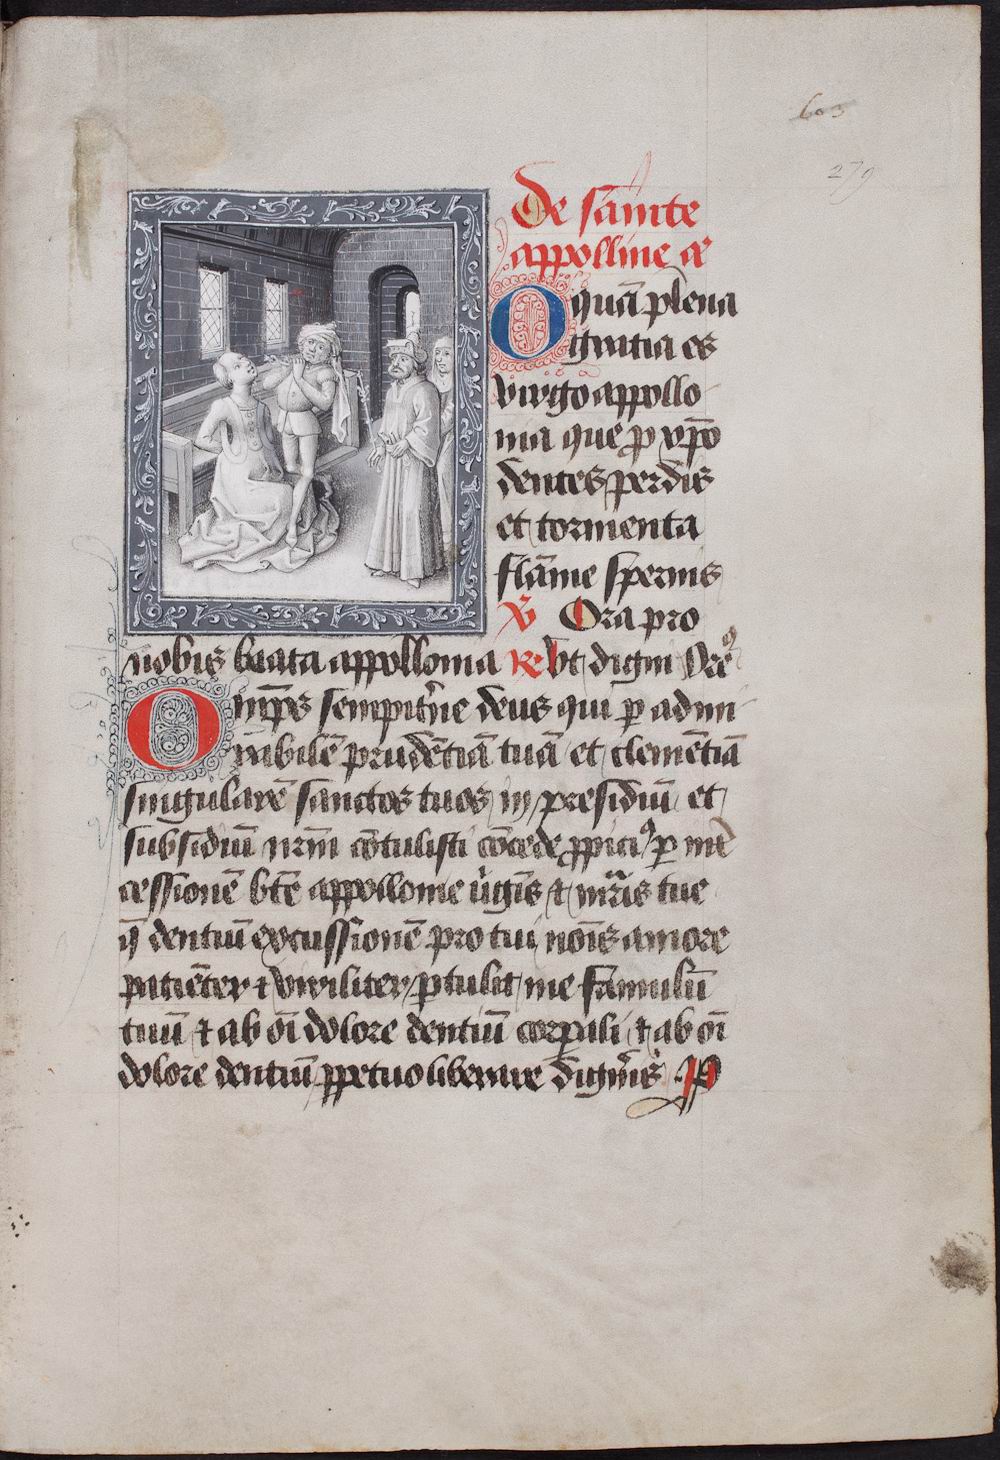 603
279
De saincte
appolline añ
O quā plena
gratia es
virgo appollo
nia que p xp̄o
dentes perdis
et tormenta
flāme spernis
V̄ Ora pro
nobis beata appollonia R̄ Vt digni Oro᷒
Omp̄s sempit'ne deus qui p admi
rabilē prudētiā tuā et clemētiā
singularē sanctos tuos in presidiū et
subsidiū nr̄m ōtulisti cōcede ppici᷒ p int̄
cessionē bt̄e appollonie v'gīs ⁊ mr̄is tue
q̄ dentiū excussionē pro tui noīs amore
patiēter ⁊ viriliter ptulit me famulū
tuū ⁊ ab oī dolore dentiū corpali ⁊ ab oī
dolore dentiū ppetuo liberare digneris P